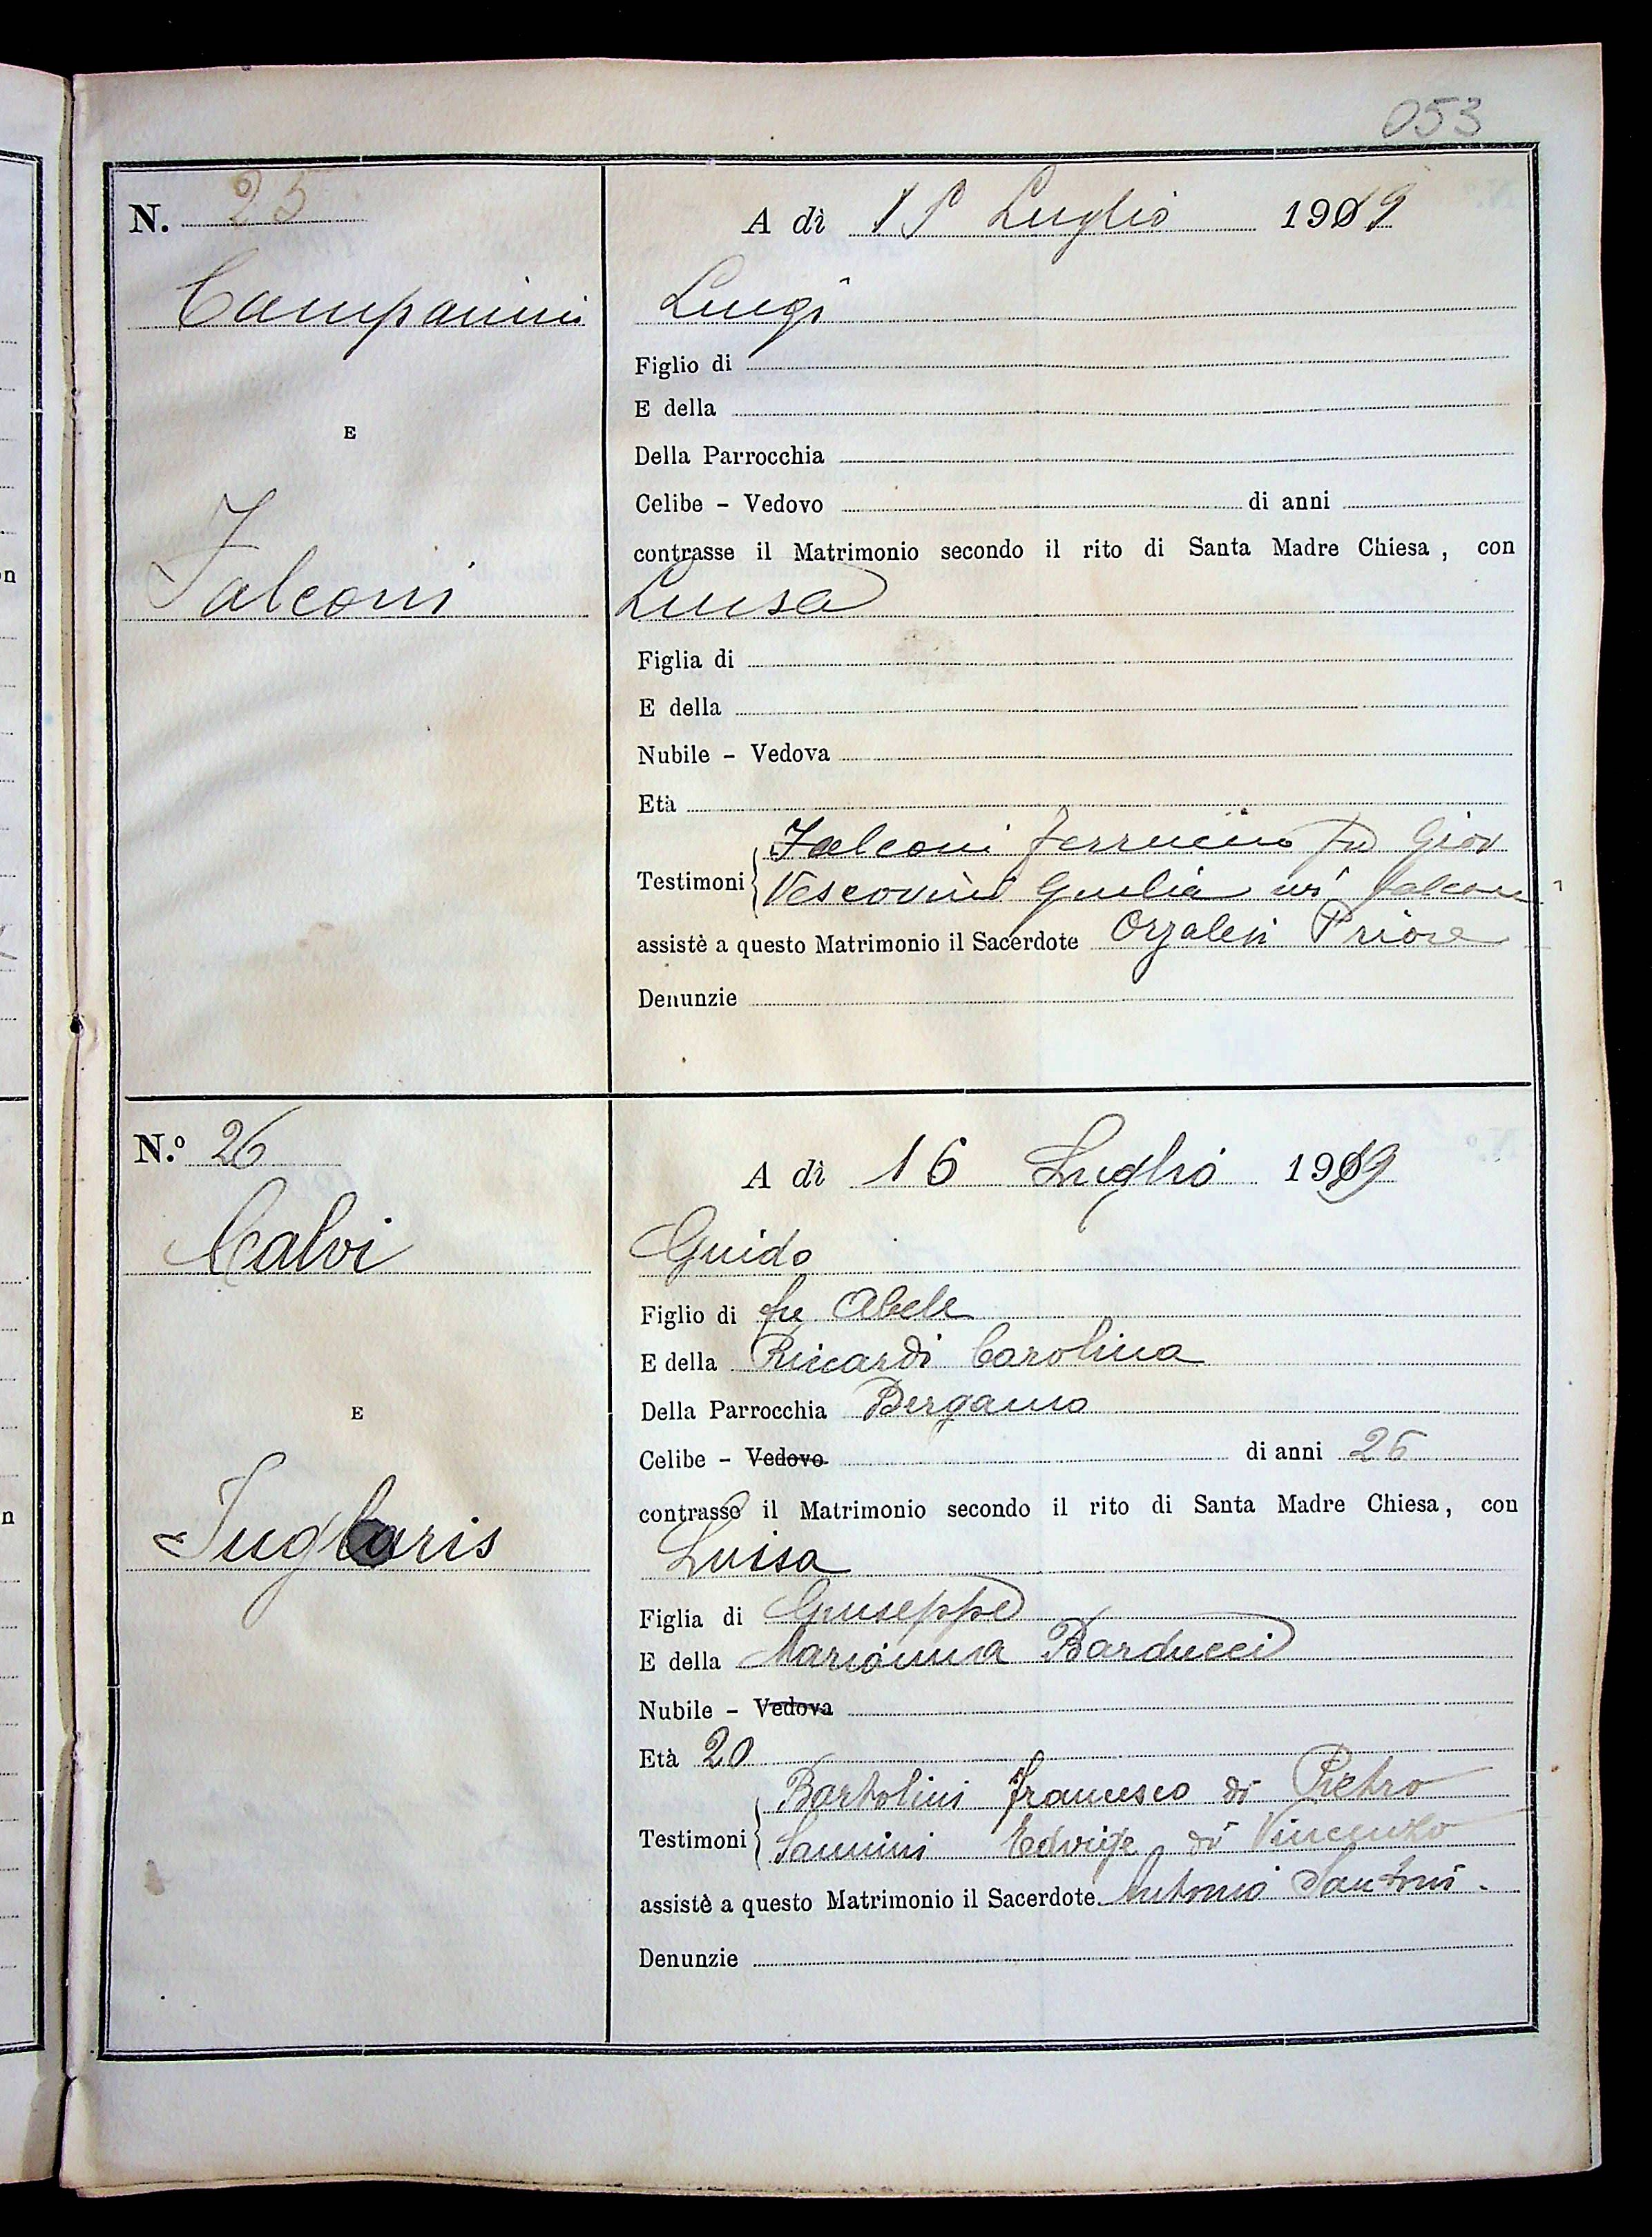 053
N. 25
A dì 15 Luglio 1919
Campanini
Luigi
Figlio di
E della
Della Parrocchia
E
Celibe - Vedovo di anni
contrasse il Matrimonio secondo il rito di Santa Madre Chiesa, con
Falconi
Luisa
Figlia di
E della
Nubile - Vedova
Età
Falconi Ferruccio fu Giov
Testimoni Vescovini Giulia in Falconi
assistè a questo Matrimonio il Sacerdote Orzalesi Priore
Denunzie
N.º 26
A dì 16 Luglio 1919
Calvi
Guido
Figlio di fu Abele
E della Riccardi Carolina
Della Parrocchia Bergamo
E
Celibe - Vedovo di anni 26
contrasse il Matrimonio secondo il rito di Santa Madre Chiesa, con
Juglaris
Luisa
Figlia di Giuseppe
E della Marianna Barducci
Nubile - Vedova
Età 20
Bartolini Francesco di Pietro
Testimoni Sannini Edvige di Vincenzo
assistè a questo Matrimonio il Sacerdote Antonio Santoni.
Denunzie